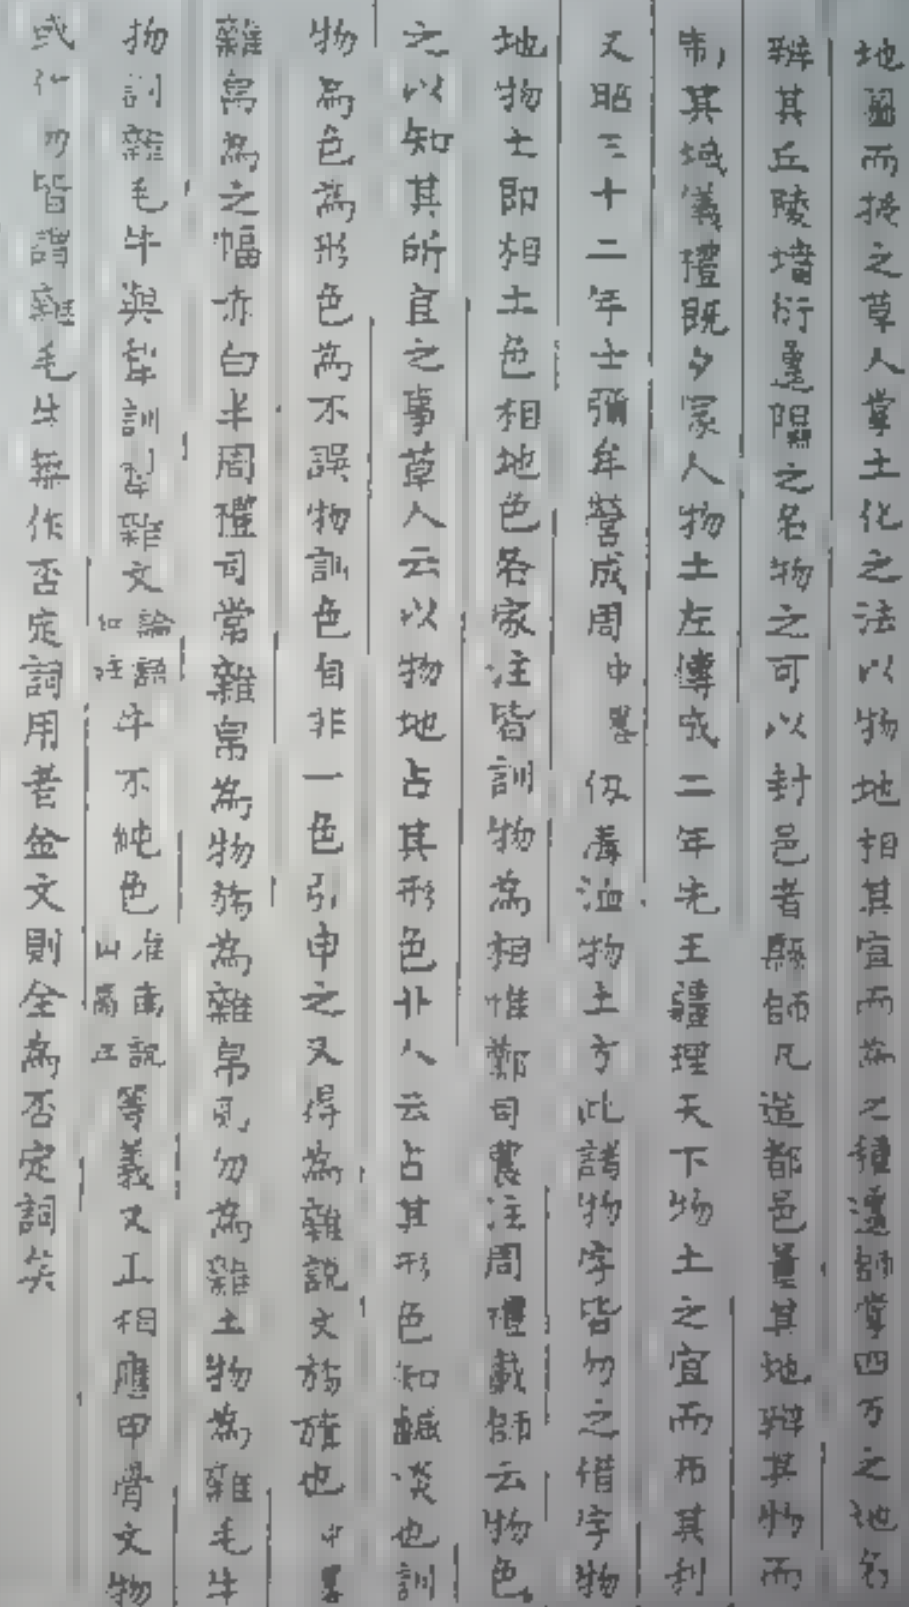 地圖而授之草人掌土化之法以物地相其宜而為之種邍師掌四方之地名
辨其丘陵墳衍邍隰之名物之可以封邑者縣師凡造都邑量其地辨其物而
制其域儀禮既夕冢人物土左傳成二年先王疆理天下物土之宜而布其利
又昭三十二年士彌牟營成周中畧仞溝洫物土方此諸物字皆勿之借字物
地物土即相土色相地色各家注皆訓物為相惟鄭司農注周禮載師云物色
之以知其所宜之事草人云以物地占其形色卝人云占其形色知鹹淡也訓
物為色為形色為不誤物訓色自非一色引申之又得為雜說文旂旗也中畧
雜帛為之幅赤白半周禮司常雜帛為物旂為雜帛則勿為雜土物為雜毛牛
物訓雜毛牛與犂訓犂雜文論語注牛不純色淮南說山高注等義又正相應甲骨文物
或作勿皆謂雜毛牛無作否定詞用者金文則全為否定詞矣